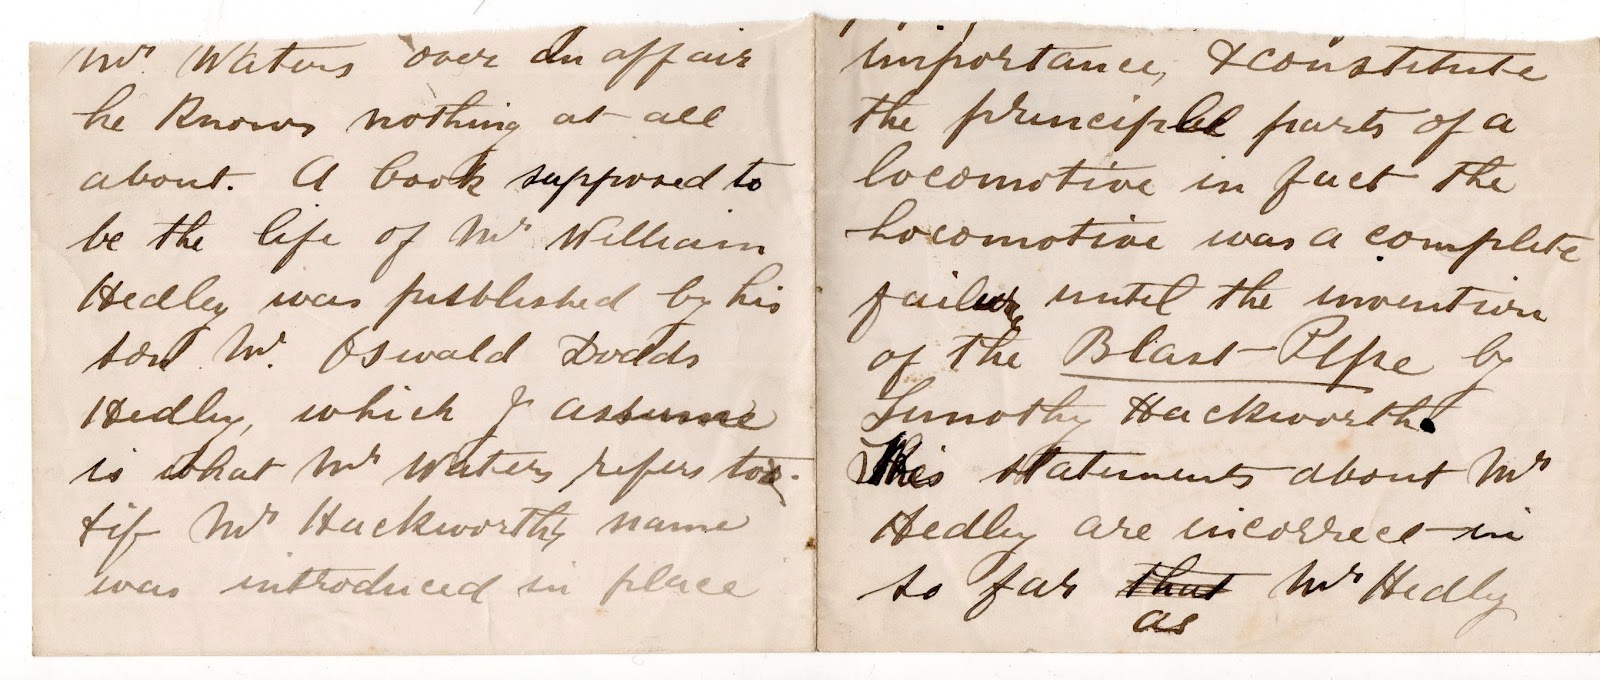 Mr. Waters over an affair
he knows nothing at all
about. A book supposed to
be the life of Mr William
Hedley was published by his
son Mr. Oswald Dodds
Hedley, which I assume
is what Mr Waters refers to
& if Mr Hackworth's name
was introduced in place
importance, & constitute
the principle parts of a
locomotive in fact the
locomotive was a complete
failure until the invention
of the Blast Pipe by
Timothy Hackworth.
His statements about Mr
Hedley are incorrect in
so far that Mr Hedley
as